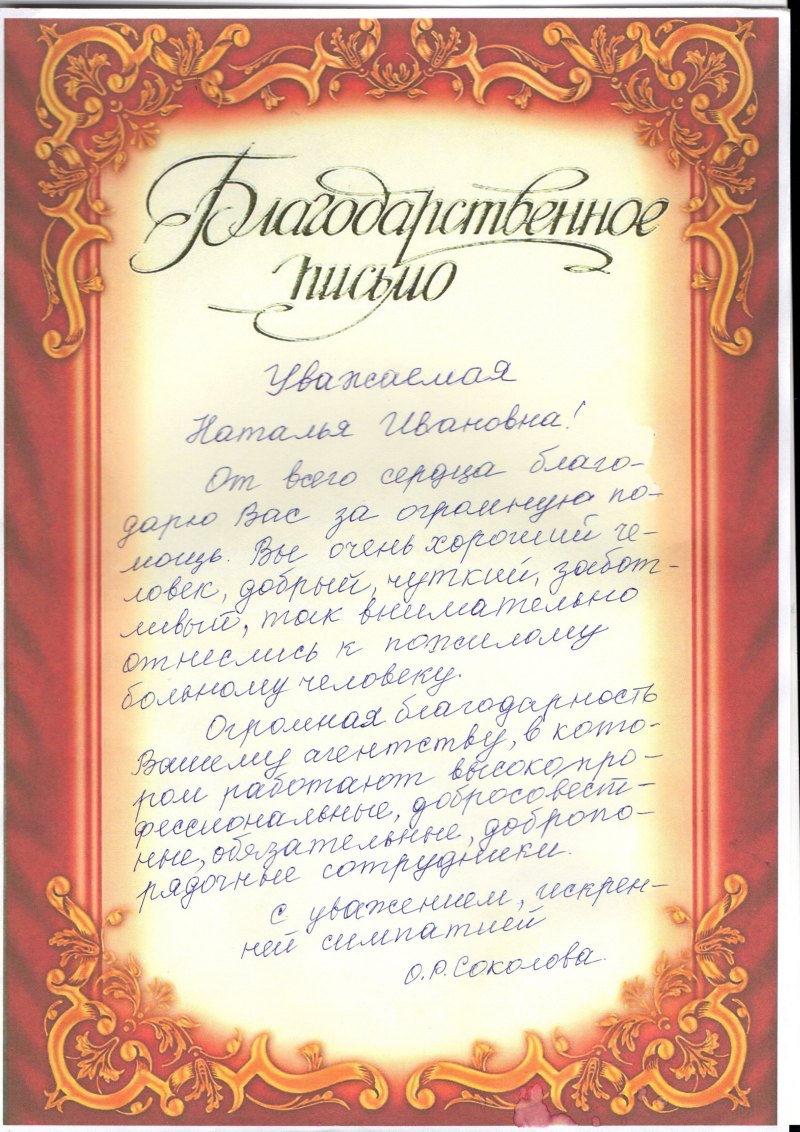 Благодарственное
письмо
Уважаемая
Наталья Ивановна!
От всего сердца благо-
дарю Вас за огромную по-
мощь. Вы очень хороший че-
ловек, добрый, чуткий, забот-
ливый, так внимательно
отнеслись к пожилому
больному человеку.
Огромная благодарность
Вашему агентству, в кото-
ром работают высокопро-
фессиональные, добросовест-
ные, обязательные, добропо-
рядочные сотрудники.
С уважением, искрен-
ней симпатией
О.Р. Соколова.